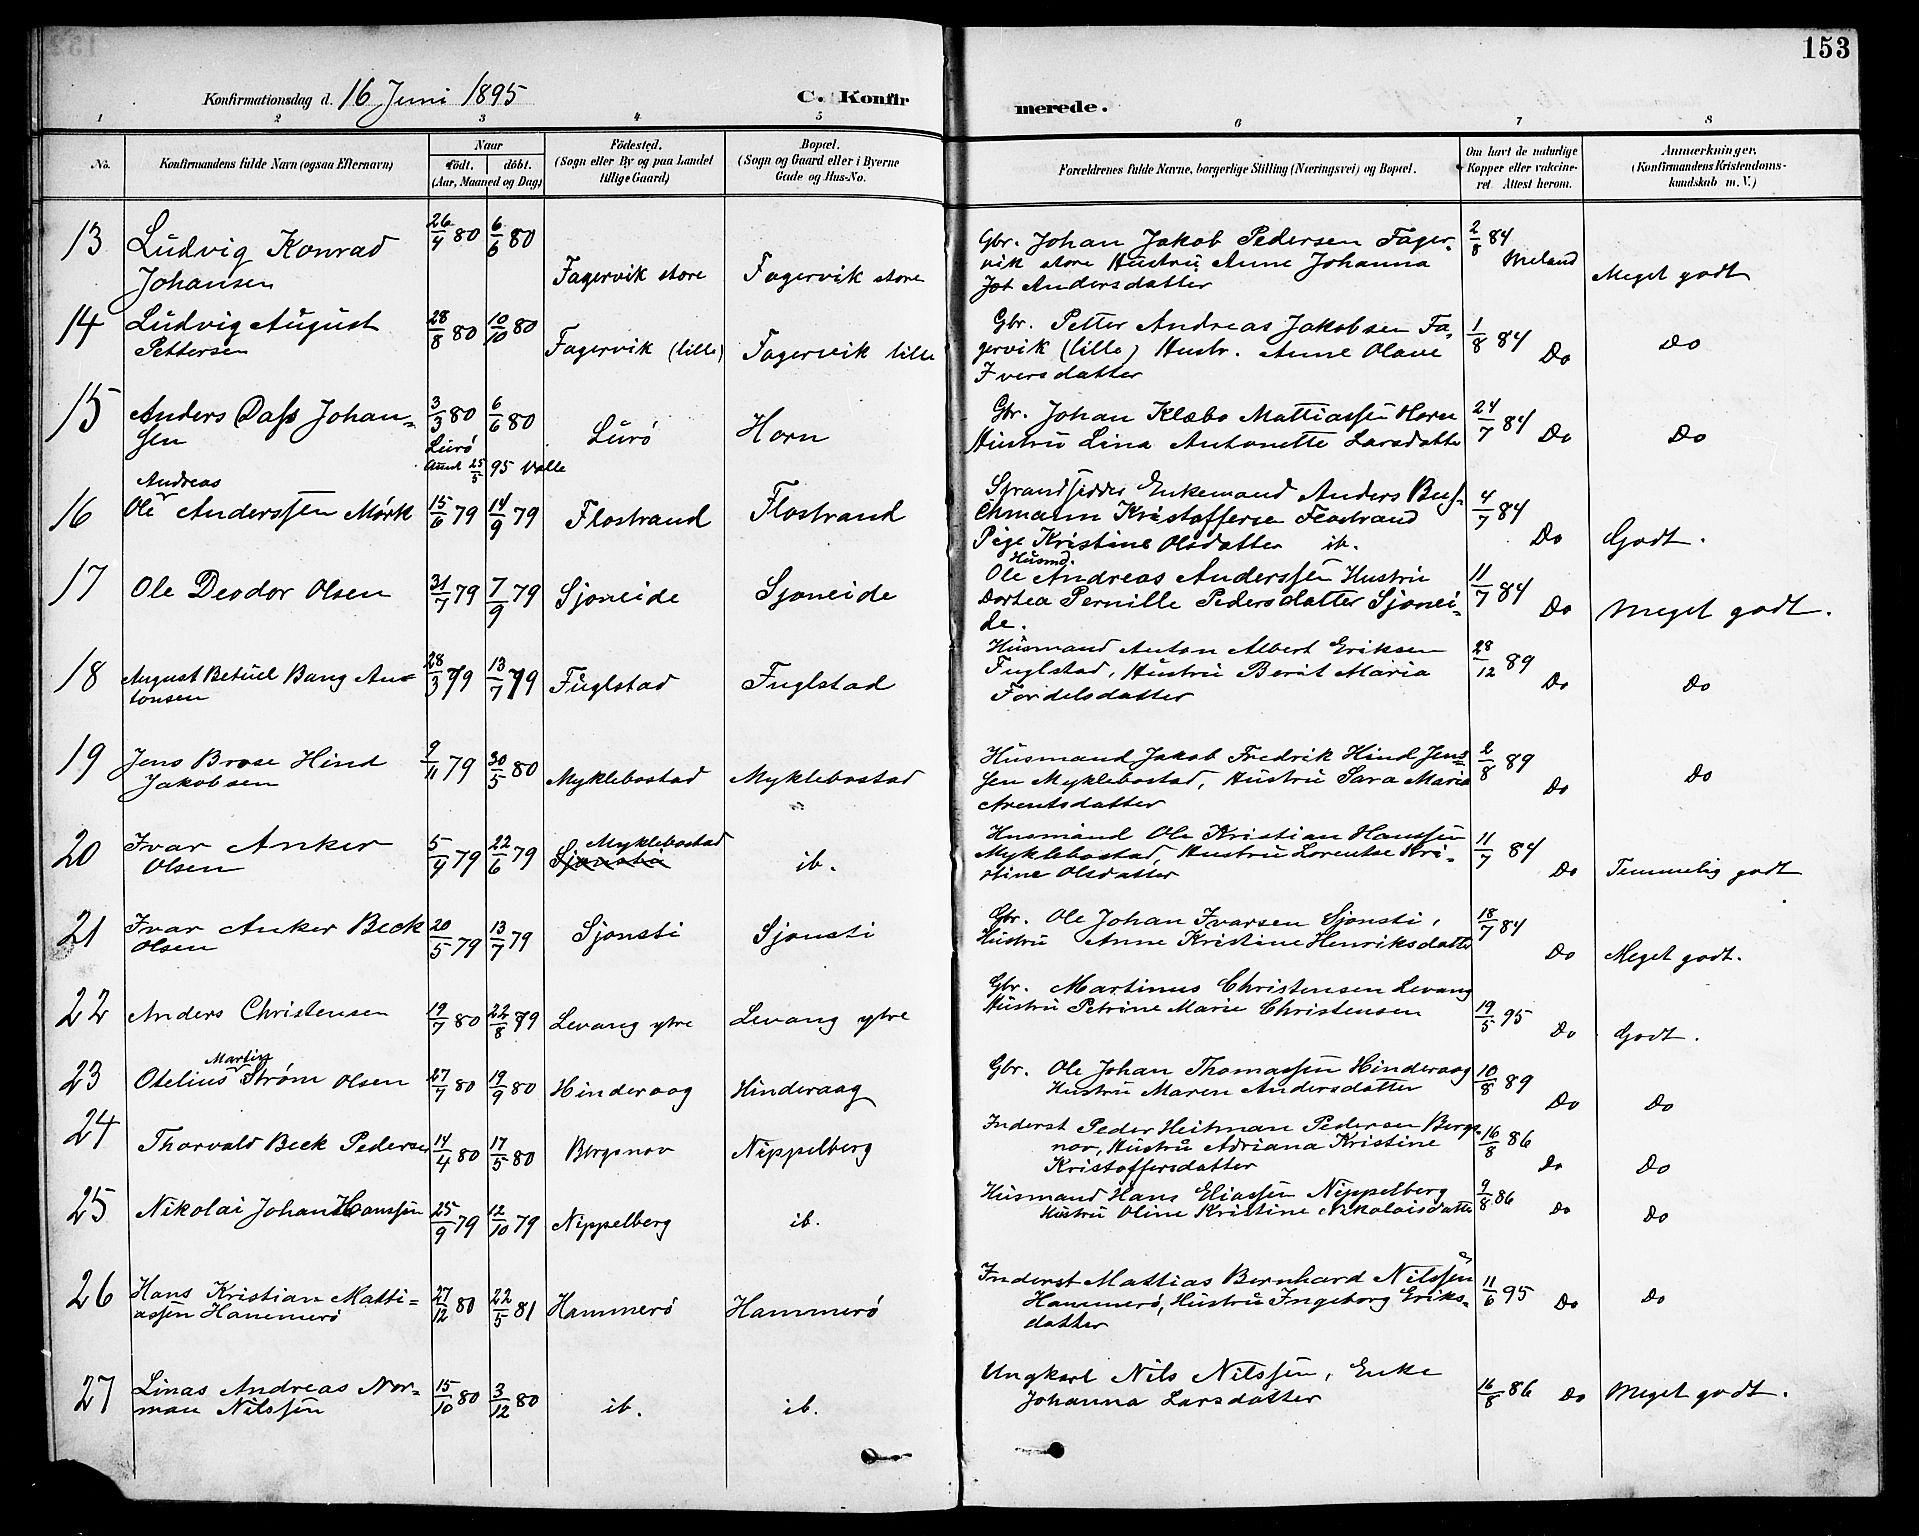 153
Konfirmationsdag d. 16 Juni 1895
C. Konfirmerede.
1 2 3 4 5 6 7 8
No. | Konfirmandens fulde Navn (ogsaa Efternavn) | Naar født. døbt. (Aar, Maaned og Dag) | Födested. (Sogn eller By og paa Landet tillige Gaard) | Bopæl. (Sogn og Gaard eller i Byerne Gade og Hus-No. | Forældrenes fulde Navne, borgerlige Stilling (Næringsvei) og Bopæl. | Om havt de naturlige Kopper eller vakcineret. Attest herom. | Anmærkninger. (Konfirmandens Kristendomskundskab m. V.)
13 | Ludvig Konrad Johansen | 26/4 80 | 6/6 80 | Fagervik store | Fagervik store | Gbr. Johan Jakob Pedersen Fagervik store Hustru Anne Johanna Andersdatter | 2/8 84 Meland | Meget godt
14 | Ludvig August Pettersen | 28/8 80 | 10/10 80 | Fagervik (lille) | Fagervik lille | Gbr. Petter Andreas Jakobsen Fagervik (lille) Hustr. Anne Olave Iversdatter | 1/8 84 Do | Do
15 | Anders Dass Johansen | 3/3 80 | 6/6 80 | Lurö Attest 25/5 95 Valle | Lurö | Horn | Gbr. Johan Klæbo Mattiassen Horn Hustru Lina Antonette Larsdatter | 24/7 84 Do | Do
16 | Ole Andreas Anderssen Mørk | 15/6 79 | 14/9 79 | Flostrand | Flostrand | Strandsidder Enkemand Anders Buschmann Kristoffersen Flostrand Pige Kristine Olsdatter ib. | 4/7 84 Do | Godt.
17 | Ole Deodor Olsen | 31/7 79 | 7/9 79 | Sjoneide | Sjoneide | Husmd. Ole Andreas Anderssen Hustru Dortea Pernille Pedersdatter Sjoneide. | 11/7 84 Do | Meget godt.
18 | August Betuel Bang Antonsen | 28/3 79 | 13/7 79 | Fuglstad | Fuglstad | Husmand Anton Albert Eriksen Fuglstad, Hustru Berit Maria Fordelsdatter | 28/12 89 Do | Do
19 | Jens Brose Hind Jakobsen | 9/11 79 | 30/5 80 | Myklebostad | Myklebostad | Husmand Jakob Fredrik Hind Jenssen Myklebostad, Hustru Sara Maria Arentsdatter | 2/8 89 Do | Do
20 | Ivar Anker Olsen | 5/4 79 | 22/6 79 | Myklebostad Sjonsti | ib. | Husmand Ole Kristian Hanssen Myklebostad, Hustru Lorentse Kristine Olsdatter | 11/7 84 Do | Temmelig godt
21 | Ivar Anker Beck Olsen | 20/5 79 | 13/7 79 | Sjonsti | Sjonsti | Gbr. Ole Johan Ivarsen Sjonsti, Hustru Anne Kristine Henriksdatter | 18/7 84 Do | Meget godt.
22 | Anders Christensen | 19/7 80 | 22/8 79 | Levang ytre | Levang ytre | Gbr. Martinus Christensen Levang Hustru Petrine Marie Christensen | 19/5 95 Do | Godt.
23 | Otelius Martin Strøm Olsen | 27/7 80 | 19/9 80 | Hinderaag | Hinderaag | Gbr. Ole Johan Thomassen Hinderaag Hustru Maren Andersdatter | 10/8 89 Do | Do
24 | Thorvald Beck Pedersen | 14/4 80 | 17/5 80 | Bergsnov | Nippelberg | Inderst Peder Heitman Pedersen Bergsnov, Hustru Adriana Kristine Kristoffersdatter | 16/8 86 Do | Do
25 | Nikolai Johan Hanssen | 25/9 79 | 12/10 79 | Nippelberg | ib. | Husmand Hans Eliassen Nippelberg Hustru Oline Kristine Nikolaisdatter | 9/8 86 Do | Do
26 | Hans Kristian Mattiassen Hammerö | 27/12 80 | 22/5 81 | Hammerö | Hammerö | Inderst Mattias Bernhard Nilssen Hammerö, Hustru Ingeborg Eriksdatter | 11/6 95 Do | Do
27 | Linas Andreas Norman Nilssen | 15/10 80 | 3/12 80 | ib. | ib. | Ungkarl Nils Nilssen, Enke Johanna Larsdatter | 16/8 86 Do | Meget godt.